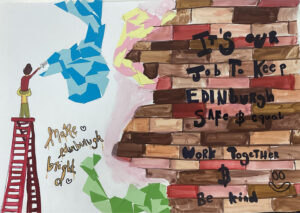 make
edinburgh
bright
IT'S OUR
JOB TO KEEP
EDINBURGH
SAFE & equal
WORK TOGETHER
&
Be kind